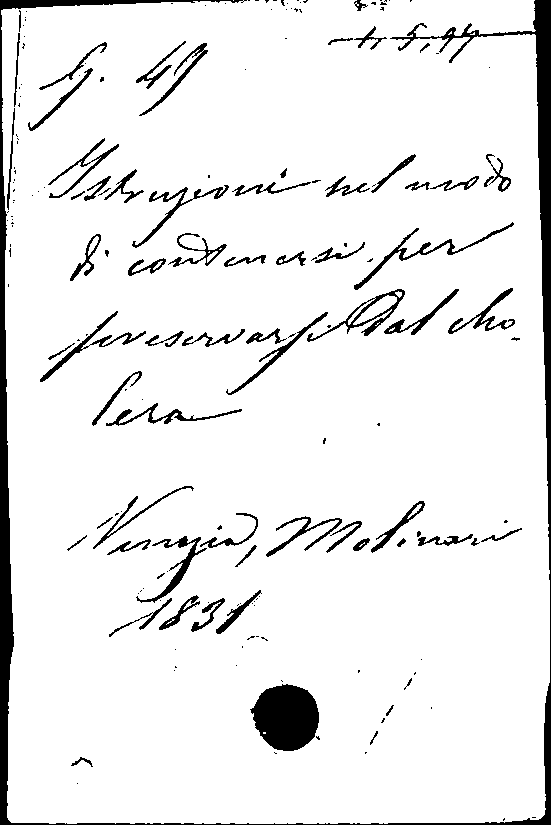 1, 5, 94
G. 49
Istruzioni nel modo
di contenersi per
preservarsi dal cho-
lera
Venezia, Molinari
1831